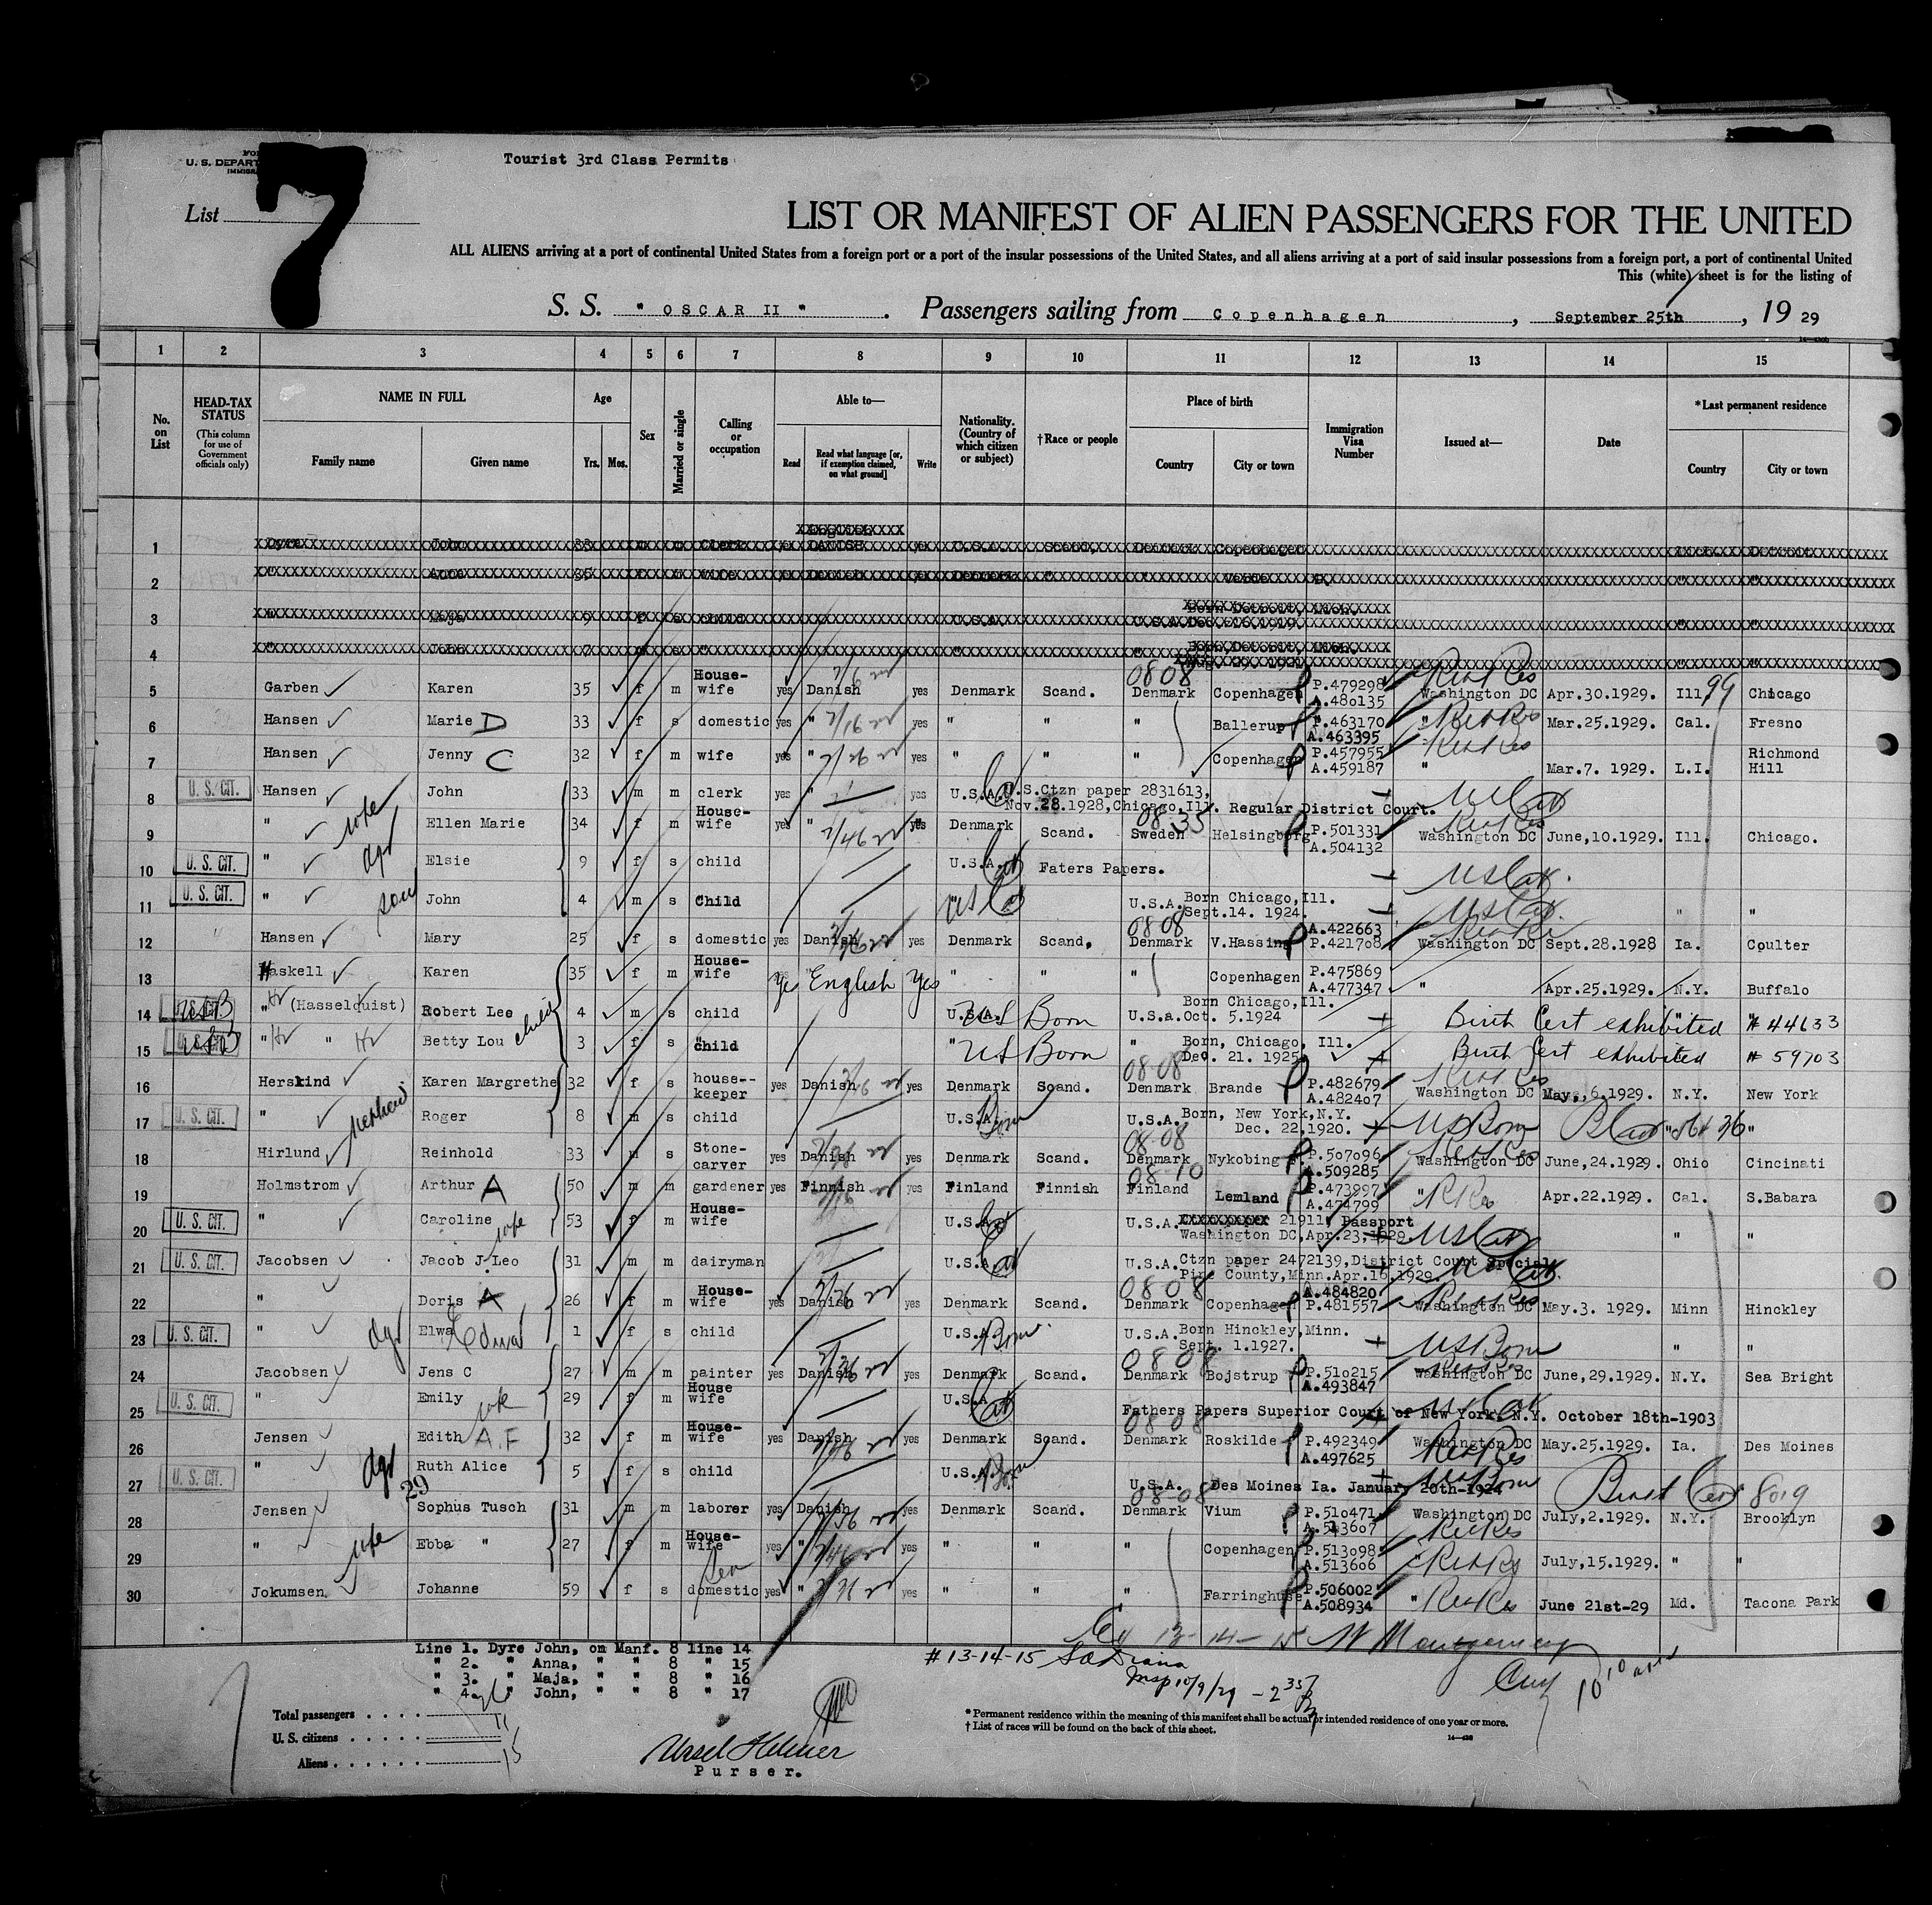 Tourist 3rd Class Permits
U. S. DEPART
List
7
LIST OR MANIFEST OF ALIEN PASSENGERS FOR THE UNITED
ALL ALIENS arriving at a port of continental United States from a foreign port or a port of the insular possessions of the United States, and all aliens arriving at a port of said insular possessions from a foreign port, a port of continental United
This (white) sheet is for the listing of
S. S. " OSCAR II " . Passengers sailing from Copenhagen , September 25th , 19 29
1 2 3 4 5 6 7 8 9 10 11 12 13 14 15
No. on List HEAD-TAX STATUS (This column for use of Government officials only) NAME IN FULL Family name Given name Age Yrs. Mos. Sex Married or single Calling or occupation Able to— Read Read what language [or, if exemption claimed, on what ground] Write Nationality. (Country of which citizen or subject) †Race or people Place of birth Country City or town Immigration Visa Number Issued at— Date *Last permanent residence Country City or town
1 John 33 m m Clerk U.S.A. Scand. Copenhagen Detroit
2 Anna 35 f m wife Danish Denmark
3 Maja 9 f s child U.S.A. Born Detroit, Mich. U.S.A. Dec. 16.1919.
4 John 7 m s Born Detroit, Mich.
5 Garben Karen 35 f m House-wife yes Danish yes Denmark Scand. 0808 Denmark Copenhagen P.479298 A.480135 Washington DC Apr.30.1929. Ill 99 Chicago
6 Hansen Marie D 33 f s domestic yes " yes " " " Ballerup P.463170 A.463395 " Mar.25.1929. Cal. Fresno
7 Hansen Jenny C 32 f m wife yes " yes " " " Copenhagen P.457955 A.459187 " Mar.7. 1929. L.I. Richmond Hill
8 U. S. CIT. Hansen John 33 m m clerk yes " yes U.S.A. U.S.Ctzn paper 2831613, Nov.28.1928,Chicago,Ill. Regular District Court. US Cit
9 " wife Ellen Marie 34 f m House-wife yes " yes Denmark Scand. 08 35 Sweden Helsingborg P.501331 A.504132 Washington DC June,10.1929. Ill. Chicago.
10 U. S. CIT. " dgr Elsie 9 f s child U.S.A. Faters Papers. US Cit.
11 U. S. CIT. " son John 4 m s Child US Cit U.S.A. Born Chicago,Ill. Sept.14. 1924. US Cit. " "
12 Hansen Mary 25 f s domestic yes Danish yes Denmark Scand. 0808 Denmark V.Hassing A.422663 P.421708 Washington DC Sept.28.1928 Ia. Coulter
13 Haskell Karen 35 f m House-wife Yes English Yes " " " Copenhagen P.475869 A.477347 " Apr.25.1929. N.Y. Buffalo
14 U.S. CIT. USB " (Hasselquist) Robert Lee child 4 m s child U.S.A. US Born U.S.a. Born Chicago,Ill. Oct. 5.1924 Birth Cert exhibited # 44633
15 U.S. CIT. USB " " Betty Lou 3 f s child " US Born " Born, Chicago, Ill. Dec. 21. 1925 Birth Cert exhibited # 59703
16 Herskind Karen Margrethe 32 f s house--keeper yes Danish yes Denmark Scand. 08-08 Denmark Brande P.482679 A.482407 Washington DC May,,6.1929. N.Y. New York
17 U. S. CIT. " nephew Roger 8 m s child U.S.A. Born U.S.A. Born, New York,N.Y. Dec. 22.1920. US Born "
18 Hirlund Reinhold 33 m s Stone-carver yes Danish yes Denmark Scand. 08-08 Denmark Nykobing F. P.507096 A.509285 Washington DC June,24.1929. Ohio Cincinati
19 Holmstrom Arthur A 50 m m gardener yes Finnish yes Finland Finnish 08-10 Finland Lemland P.473997 A.474799 " Apr.22.1929. Cal. S.Babara
20 U. S. CIT. " Caroline wife 53 f m House-wife U.S.A. U.S.A. 21911 Passport Washington DC,Apr.23,1929 US Cit " "
21 U. S. CIT. Jacobsen Jacob J.Leo 31 m m dairyman U.S.A. U.S.A. Ctzn paper 2472139,District Court Special Pine County,Minn.Apr.16.1929. US Cit.
22 " Doris A 26 f m House-wife yes Danish yes Denmark Scand. 0808 Denmark Copenhagen A.484820 P.481557 Washington DC May.3. 1929. Minn Hinckley
23 U. S. CIT. " dgr Elwa Edwa 1 f s child U.S.A. Born U.S.A. Born Hinckley,Minn. Sept. 1.1927. US Born " "
24 Jacobsen Jens C 27 m m painter yes Danish yes Denmark Scand. 0808 Denmark Bojstrup P.510215 A.493847 Washington DC June,29.1929. N.Y. Sea Bright
25 U. S. CIT. " Emily wife 29 f m House wife U.S.A. Cit Fathers Papers Superior Court of New York, N.Y. October 18th-1903
26 Jensen Edith A.F 32 f m House-wife yes Danish yes Denmark Scand. 0808 Denmark Roskilde P.492349 A.497625 Washington DC May.25.1929. Ia. Des Moines
27 U. S. CIT. " dgr Ruth Alice 5 f s child U.S.A. Born U.S.A. Des Moines Ia. January 20th-1924 US Born Birth Cert 8019
28 Jensen 29 Sophus Tusch 31 m m laborer yes Danish yes Denmark Scand. 08-08 Denmark Vium P.510471 A.513607 Washington DC July,2.1929. N.Y. Brooklyn
29 " wife Ebba " 27 f m House-wife yes " yes " " " Copenhagen P.513098 A.513606 " July,15.1929. " "
30 Jokumsen Johanne 59 f s domestic yes " yes " " " Farringhuse P.506002 A.508934 " June 21st-29 Md. Tacona Park
Line 1. Dyre John, on Manf. 8 line 14
" 2. " Anna, " " 8 " 15
" 3. " Maja, " " 8 " 16
" 4. " John, " " 8 " 17
13-14-15 W Montgomery
# 13-14-15
Insp 10/9/29 - 2 35
Total passengers
U. S. citizens 11
Aliens 15
Purser.
* Permanent residence within the meaning of this manifest shall be actual or intended residence of one year or more.
† List of races will be found on the back of this sheet.